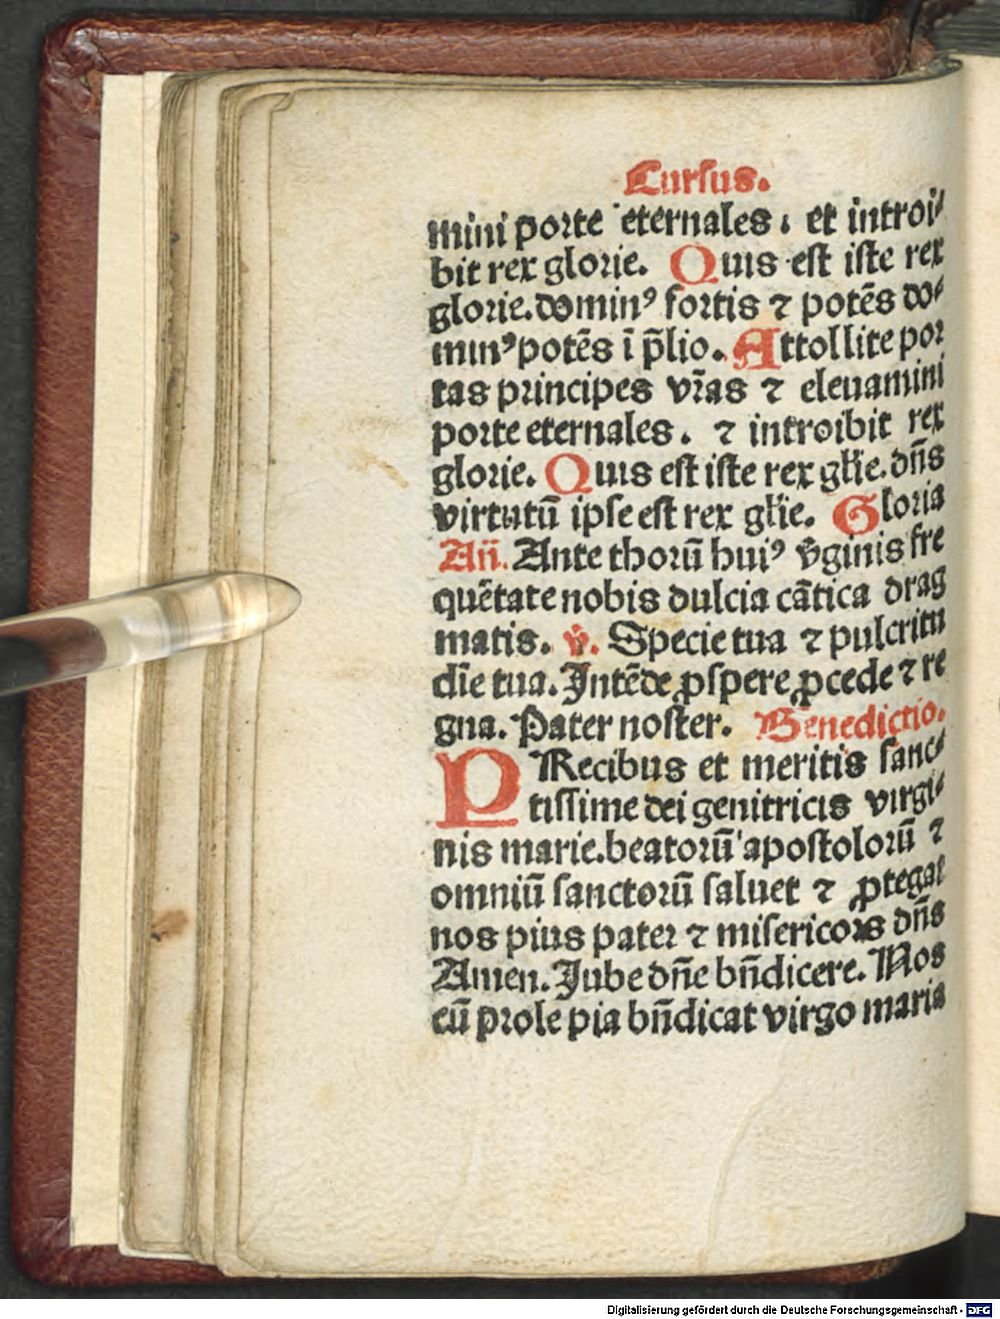 Cursus.
mini porte eternales. et introi⸗
bit rex glorie. Quis est iste rex
glorie. dominꝰ fortis ⁊ potēs do⸗
minꝰ potēs ī p̄lio. Attollite por
tas principes vr̄as ⁊ eleuamini
porte eternales. ⁊ introibit rex
glorie. Quis est iste rex gl̄ie. dn̄s
virtutū ipse est rex gl̄ie. Gloria
An̄. Ante thorū huiꝰ v̄ginis fre
quētate nobis dulcia cātica drag
matis. v̄. Specie tua ⁊ pulcritu
dīe tua. Intēde ꝓspere ꝓcede ⁊ re
gna. Pater noster. Benedictio.
PRecibus et meritis sanc⸗
tissime dei genitricis virgi⸗
nis marie. beatorū apostolorū ⁊
omniū sanctorū saluet ⁊ ꝓtegat
nos pius pater ⁊ misericors dn̄s
Amen. Jube dn̄e bn̄dicere. Nos
cū prole pia bn̄dicat virgo maria
Digitalisierung gefördert durch die Deutsche Forschungsgemeinschaft - DFG